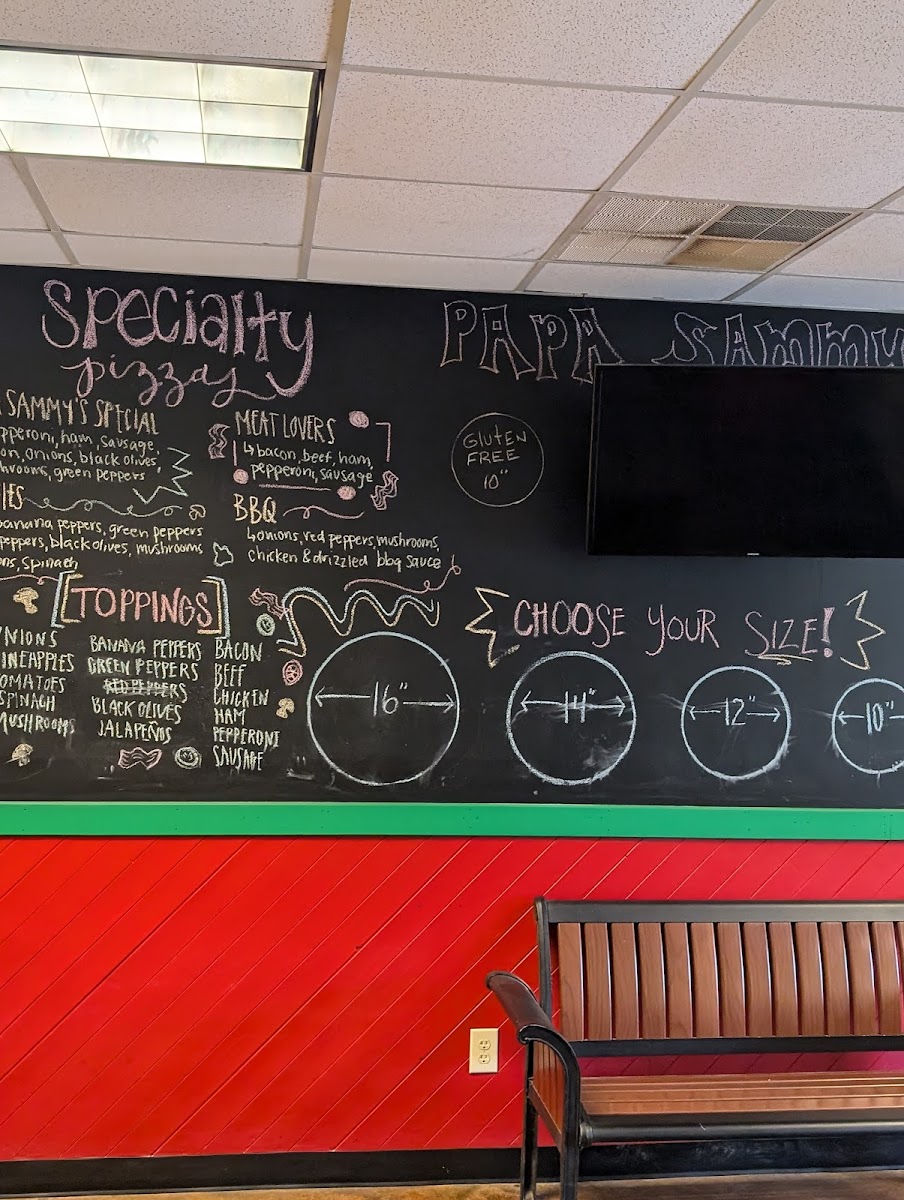 Specialty
pizzas
SAMMY'S SPECIAL
pperoni, ham, sausage
on, onions, black olives
hrooms, green peppers
IES
banana peppers, green peppers
peppers, black olives, mushrooms
ons, spinach
MEAT LOVERS
bacon, beef, ham,
pepperoni, sausage
BBQ
onions, red peppers, mushrooms,
chicken & drizzled bbq sauce
PAPA SAMMY
GLUTEN
FREE
10"
[TOPPINGS]
ONIONS
INEAPPLES
OMATOES
SPINACH
MUSHROOMS
BANANA PEPPERS
GREEN PEPPERS
RED PEPPERS
BLACK OLIVES
JALAPEÑOS
BACON
BEEF
CHICKEN
HAM
PEPPERONI
SAUSAGE
CHOOSE YOUR SIZE!
16"
14"
12"
10"